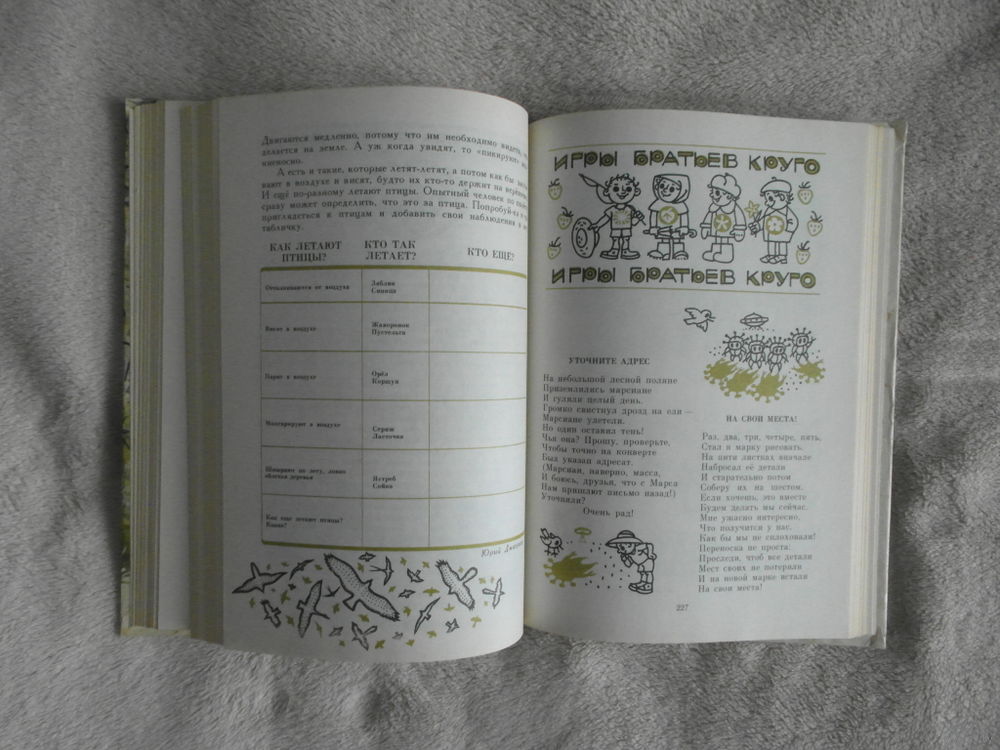 Двигаются медленно, потому что им необходимо видеть, что
делается на земле. А уж когда увидят, то «пикируют»
А есть и такие, которые летят-летят, а потом как бы
вают в воздухе и висят, будто их кто-то держит на верёвочке.
И ещё по-разному летают птицы. Опытный человек по
сразу может определить, что это за птица. Попробуй-ка и
приглядеться к птицам и добавить свои наблюдения в
табличку.
КАК ЛЕТАЮТ ПТИЦЫ?
КТО ТАК ЛЕТАЕТ?
КТО ЕЩЁ?
Отталкиваются от воздуха
Зяблик
Синица
Висят в воздухе
Жаворонок
Пустельга
Парят в воздухе
Орёл
Коршун
Маневрируют в воздухе
Стриж
Ласточка
Шныряют по лесу, ловко
облетая деревья
Ястреб
Сойка
Как еще летают птицы?
Какие?
Юрий
ИГРЫ БРАТЬЕВ КРУГО
ИГРЫ БРАТЬЕВ КРУГО
УТОЧНИТЕ АДРЕС
На небольшой лесной поляне
Приземлились марсиане
И гуляли целый день.
Громко свистнул дрозд на ели —
Марсиане улетели.
Но один оставил тень!
Чья она? Прошу, проверьте,
Чтобы точно на конверте
Был указан адресат.
(Марсиан, наверно, масса,
И боюсь, друзья, что с Марса
Нам пришлют письмо назад!)
Уточнили?
Очень рад!
НА СВОИ МЕСТА!
Раз, два, три, четыре, пять,
Стал я марку рисовать.
На пяти листках вначале
Набросал её детали
И старательно потом
Соберу их на шестом.
Если хочешь, это вместе
Будем делать мы сейчас.
Мне ужасно интересно,
Что получится у нас.
Как бы мы не сплоховали!
Переноска не проста:
Проследи, чтоб все детали
Мест своих не потеряли
И на новой марке встали
На свои места!
227